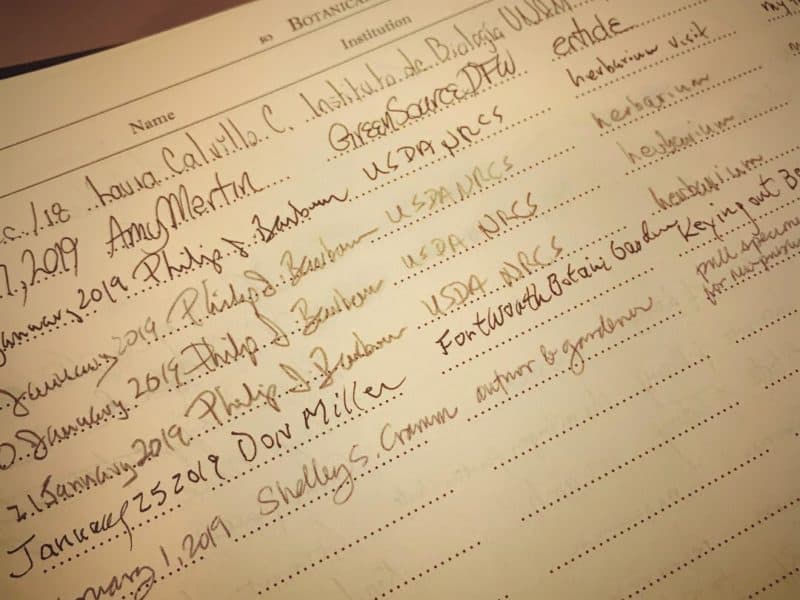 to BOTANICA
Name Institution
/18 Laura Calvillo C. Instituto de Biología UNAM
7, 2019 Amy Martin GreenSourceDFW article
January 2019 Philip J. Barbour USDA NRCS herbarium visit
January 2019 Philip J. Barbour USDA NRCS herbarium
January 2019 Philip J. Barbour USDA NRCS herbarium
21 January 2019 Philip J. Barbour USDA NRCS herbarium
January 25 2019 Don Miller Fort Worth Botanic Garden Keying out
1, 2019 Shelly S. Cramm author & gardener pull